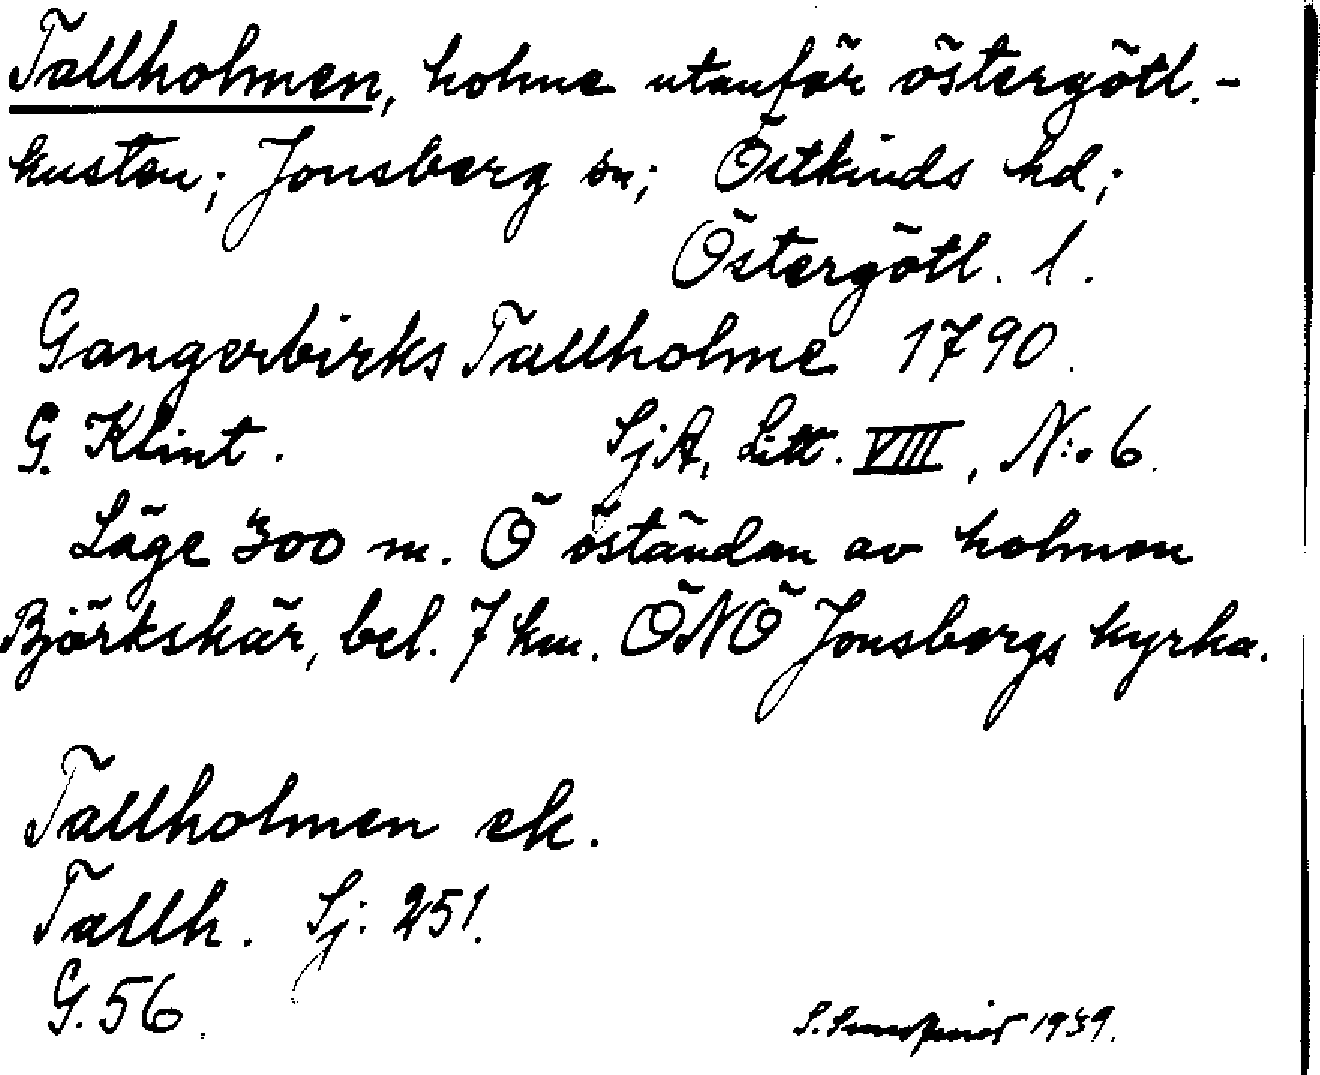 Tallholmen, holme utanför östergötl.-
kusten; Jonsberg sn; Östkinds hd;
Östergötl. l.
Gangerbirks Tallholme 1790.
G. Klint. SjA, Litt. VIII, N:o 6.
Läge 300 m. Ö öständan av holmen
Björkskär, bel. 7 km. ÖNÖ Jonsbergs kyrka.
Tallholmen ek.
Tallh. Sj: 251.
G. 56.
S. 1939.